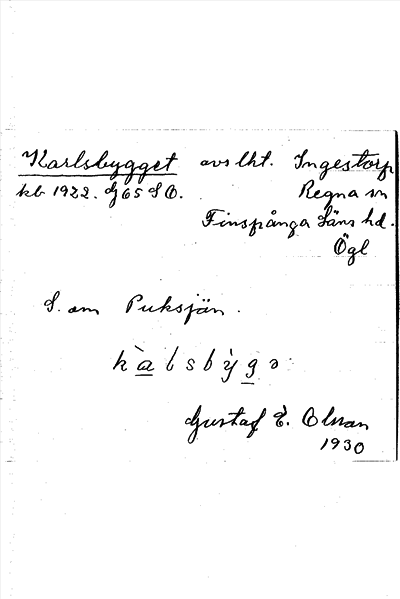 Karlsbygget avs lht. Ingestorp
kb 1922. Gj 65 SO. Regna sn
Finspånga läns hd.
Ögl
S. om Puksjön.
Gustaf E. Olson
1930